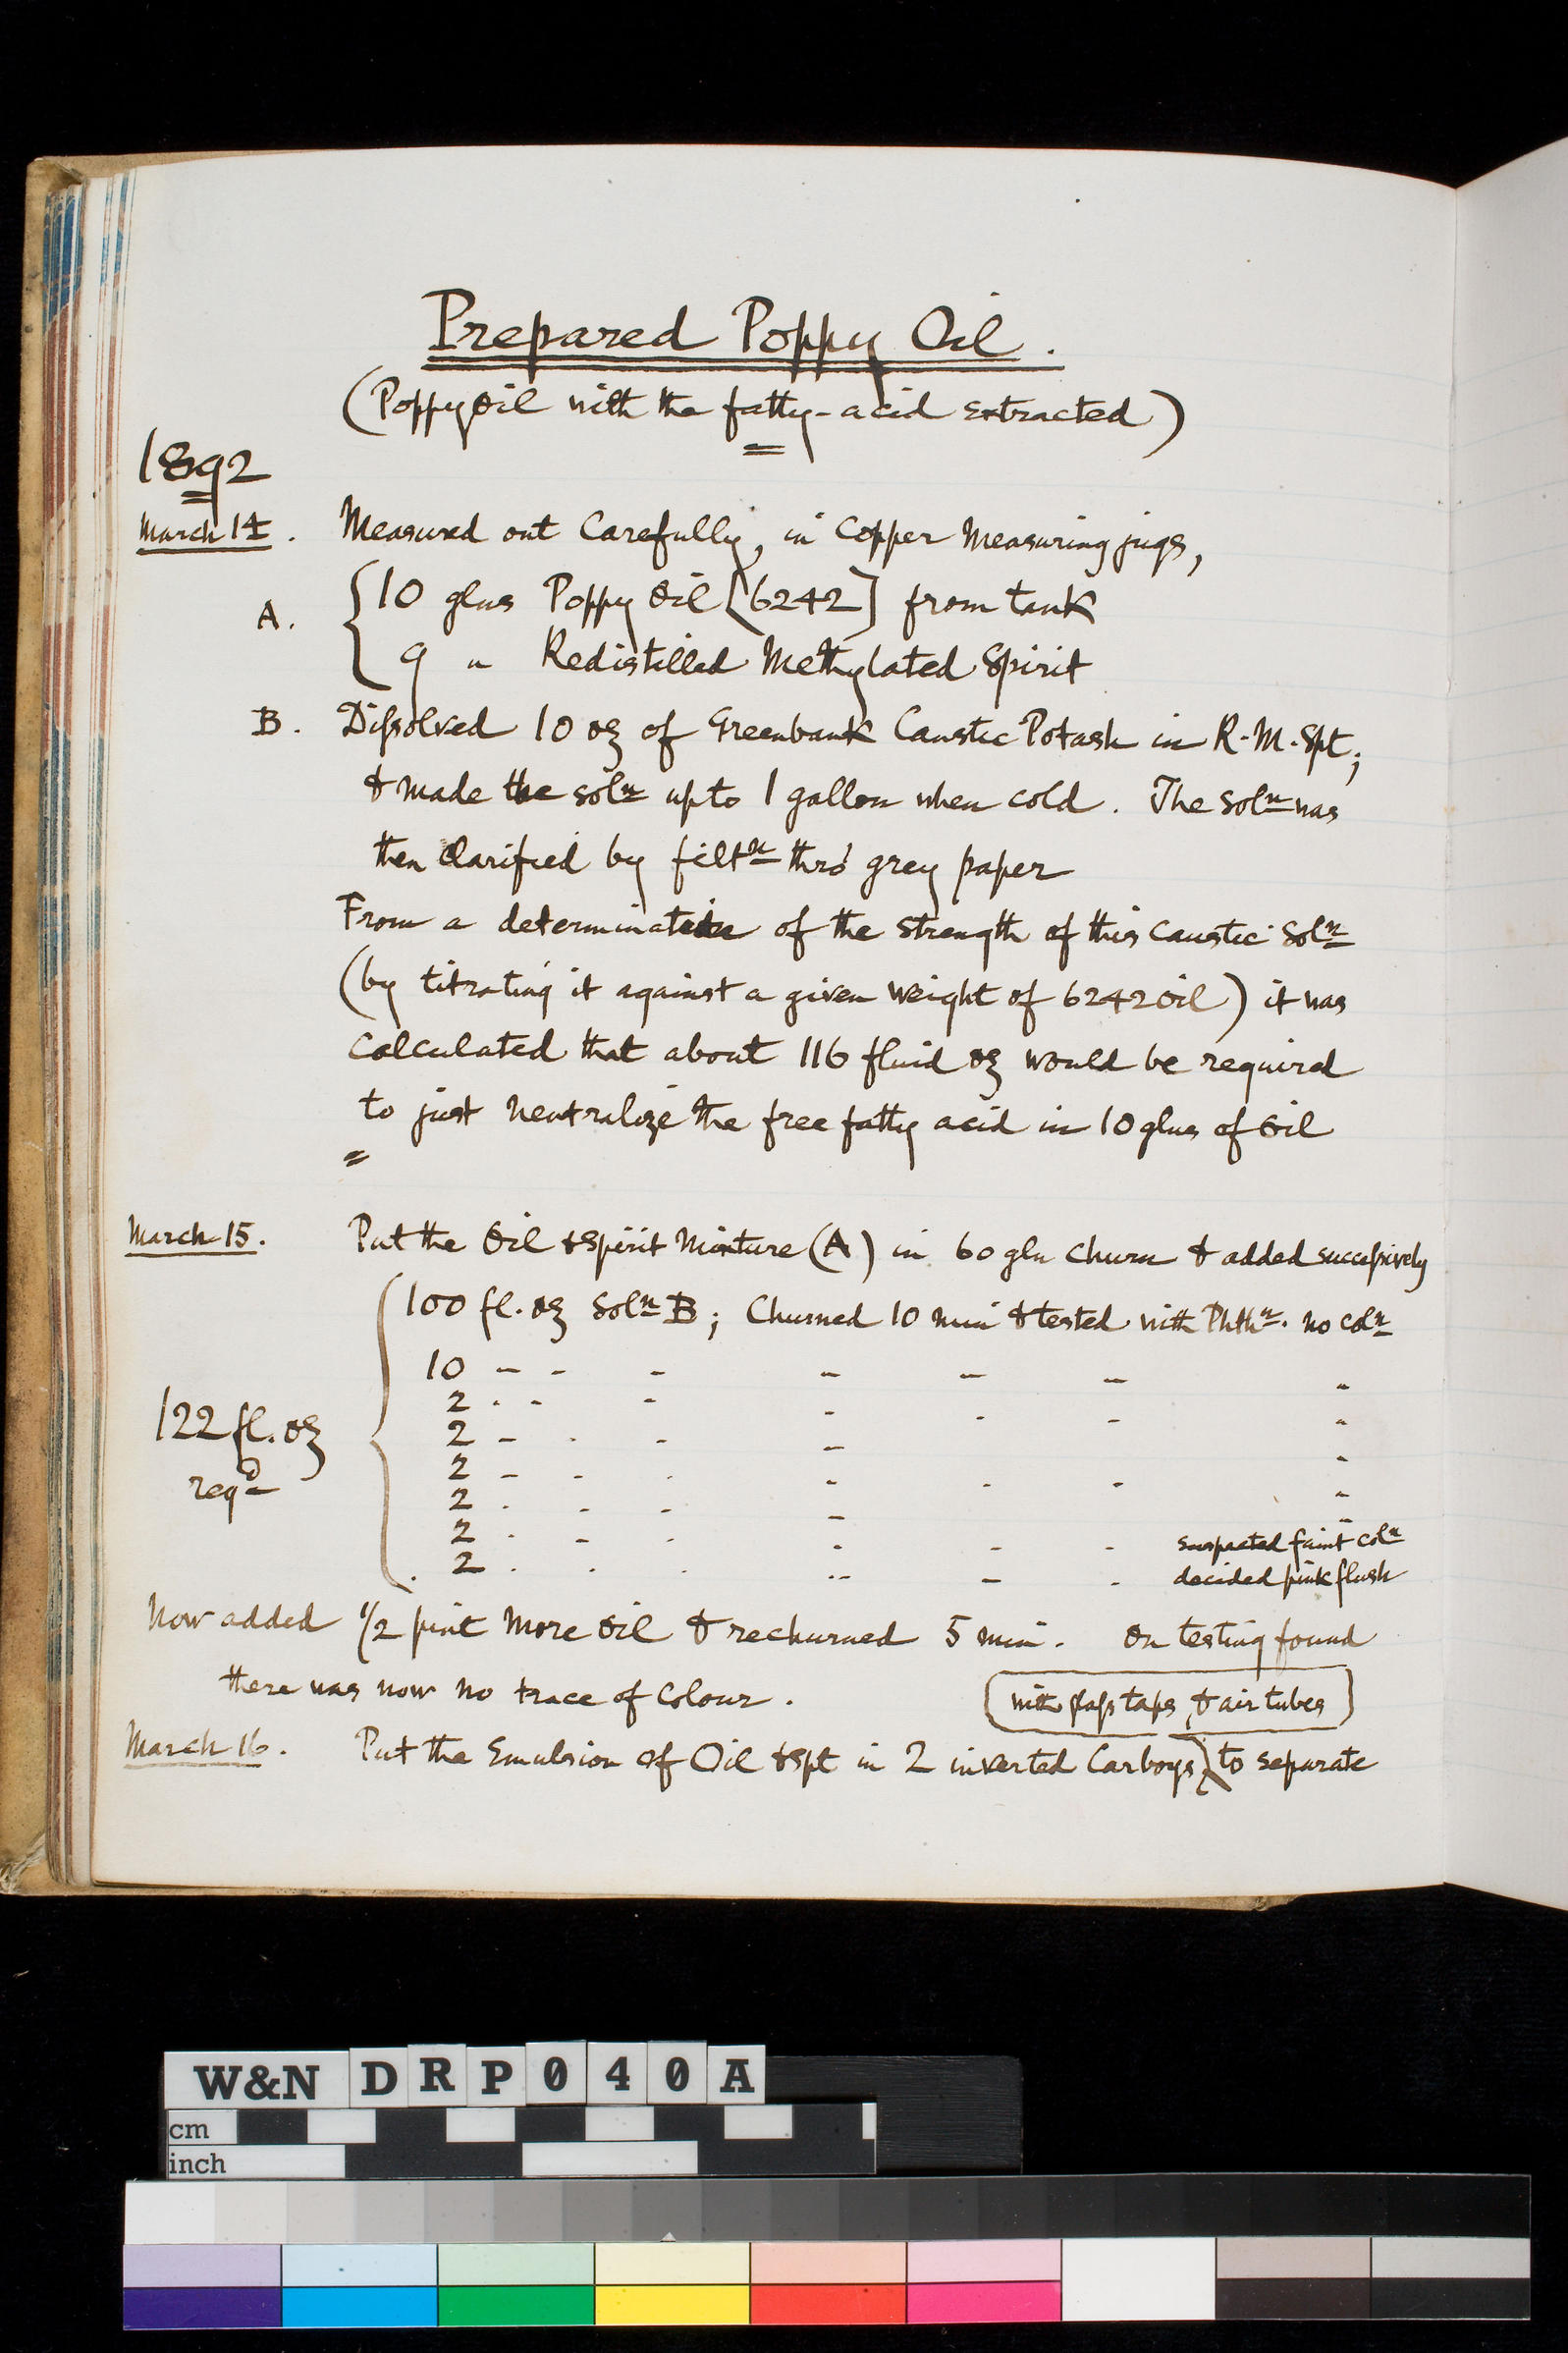 Prepared Poppy Oil.
(Poppy Oil with the fatty-acid extracted)
1892
March 14. Measured out Carefully, in Copper Measuring jugs,
A. { 10 glns Poppy Oil [6242] from tank
9 " Redistilled Methylated Spirit
B. Dissolved 10 oz of Greenbank Caustic Potash in R.M.Spt;
& made the soln up to 1 gallon when cold. The Soln was
then Clarified by filtn thro' grey paper
From a determination of the strength of this Caustic Soln
(by titrating it against a given weight of 6242 Oil) it was
Calculated that about 116 fluid oz would be required
to just Neutralize the free fatty acid in 10 glns of Oil
=
March 15. Put the Oil & Spirit Mixture (A) in 60 gln Churn & added successively
100 fl. oz Soln B; Churned 10 min & tested with Phthn. no coln
10 - - - - - - "
2 - - - - - - "
2 - - - - "
2 - - - - - - "
2 - - - - "
2 - - - - - - suspected faint coln
2 - - - - - - decided pink flush
122 fl. oz
reqd
Now added 1/2 pint More Oil & rechurned 5 min. On testing found
there was now no trace of Colour.
(with glass taps & air tubes)
March 16. Put the Emulsion of Oil & Spt in 2 inverted Carboys to separate
W&N DRP040A
cm
inch